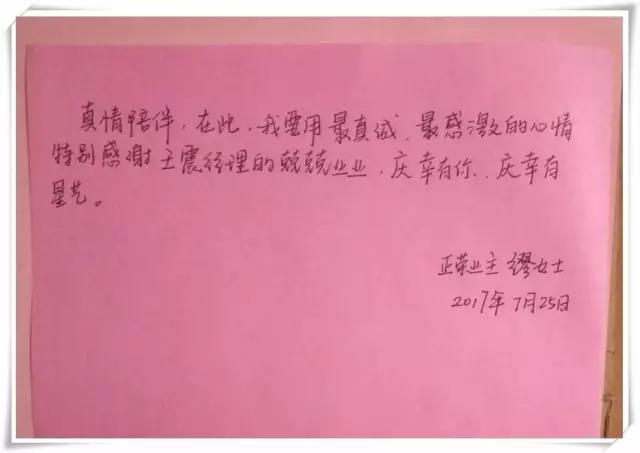 真情陪伴，在此，我要用最真诚、最感激的心情
特别感谢王震经理的兢兢业业，庆幸有你、庆幸有
星艺。
正荣业主 缪女士
2017年7月25日